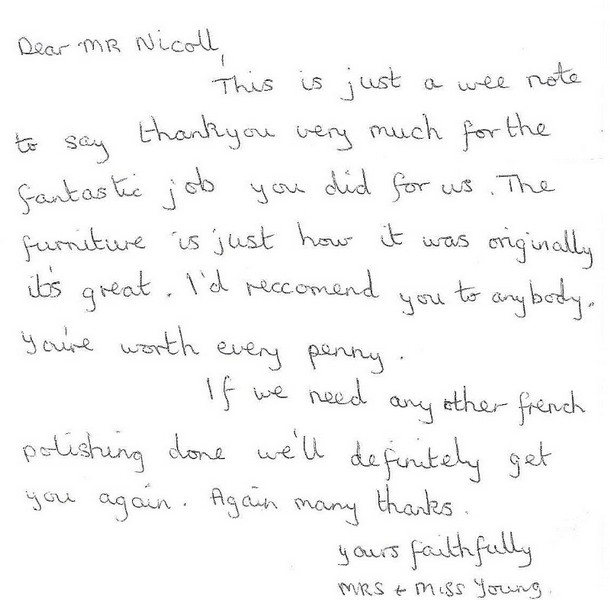 Dear MR Nicoll,
This is just a wee note
to say thankyou very much for the
fantastic job you did for us. The
furniture is just how it was originally
it's great. I'd reccomend you to anybody.
You're worth every penny.
If we need any other french
polishing done we'll definitely get
you again. Again many thanks.
yours faithfully
MRS + Miss Young.